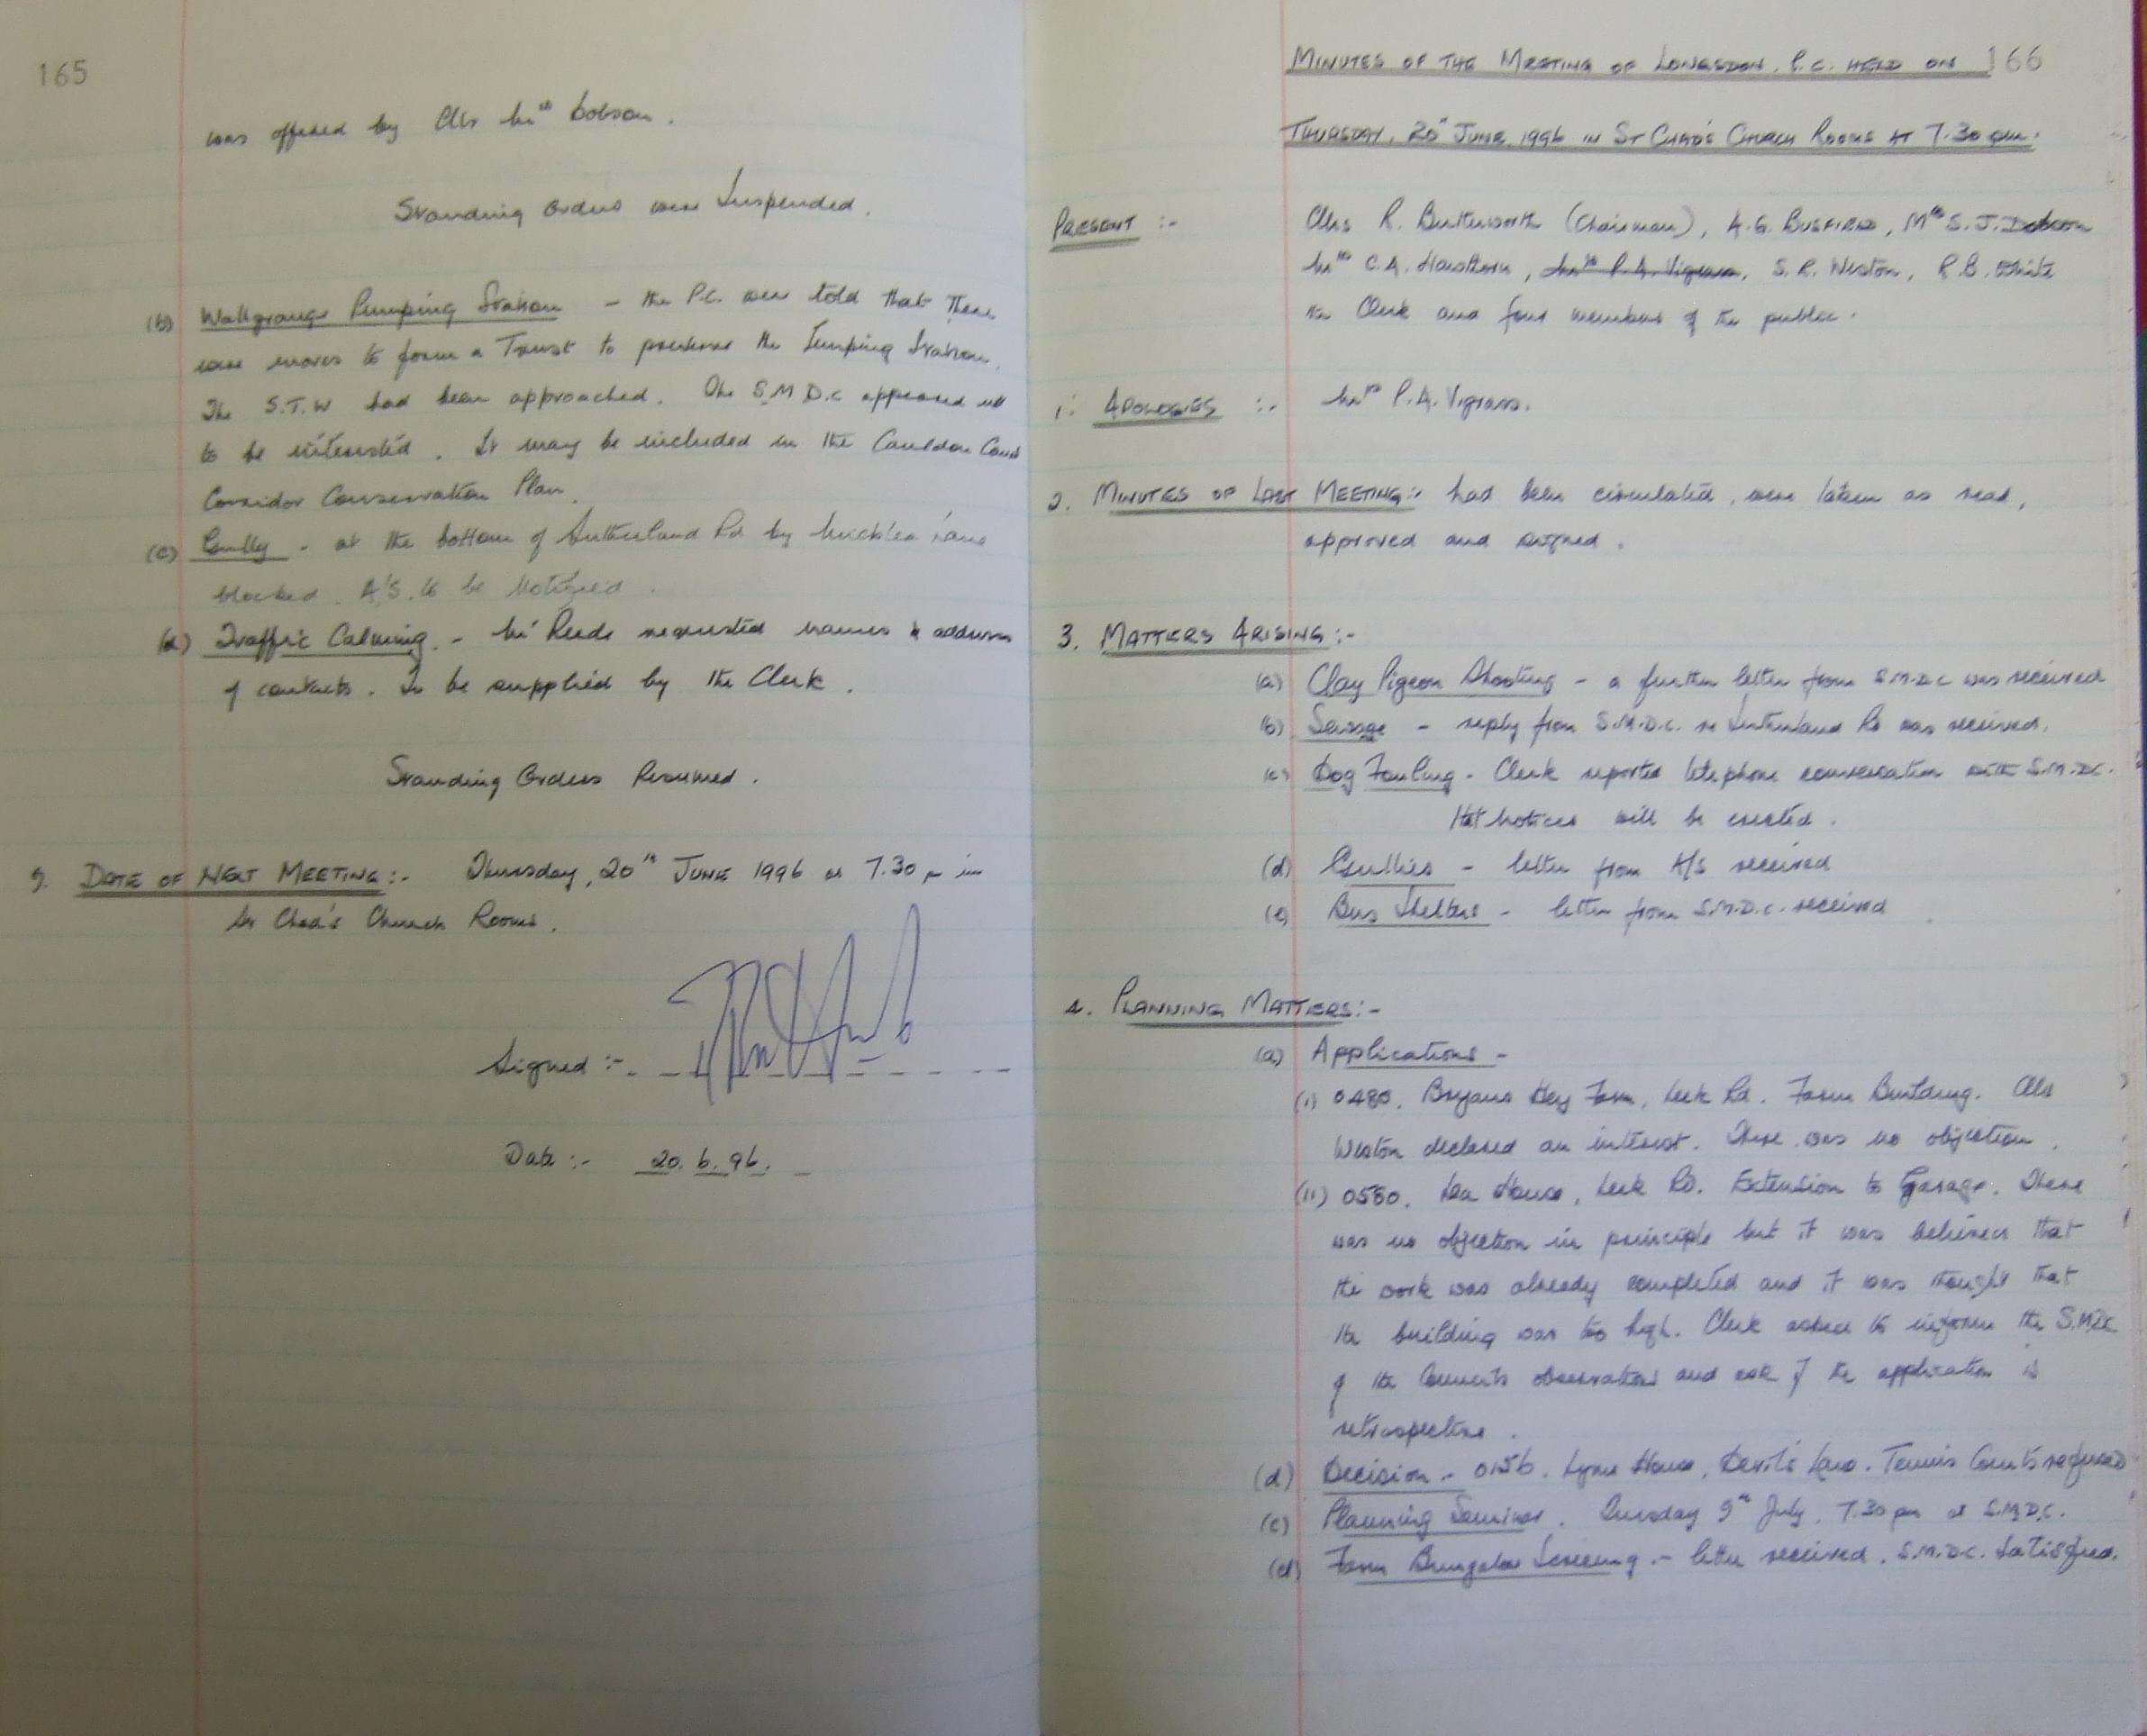 165
was offered by Cllr Mrs Dobson.
Standing Orders were Suspended.
(b) Wallgrange Pumping Station - the P.C. were told that there
were moves to form a Trust to preserve the Pumping Station.
The S.T.W had been approached. The S.M.D.C appeared not
to be interested. It may be included in the Cauldon Canal
Corridor Conservation Plan.
(c) Gully - at the bottom of Sutherland Rd by Micklea Lane
blocked. A/S. to be Notified.
(d) Traffic Calming. - Mr Reeds requested names & address
of contacts. To be supplied by the Clerk.
Standing Orders Resumed.
9. DATE OF NEXT MEETING:- Thursday, 20th JUNE 1996 at 7.30 p in
St Chad's Church Rooms.
Signed :-
Date :- 20.6.96.
MINUTES OF THE MEETING OF LONGSDON. P.C. HELD ON 166
THURSDAY, 20th JUNE, 1996 IN ST CHAD'S CHURCH ROOMS AT 7.30 pm.
PRESENT :- Cllrs R. Butterworth (Chairman), A.G. BUSFIELD, Mrs S.J. Dobson
Mrs C.A. Hawthorn, Mrs P.A. Vigrass, S.R. Weston, R.B. White
the Clerk and four members of the public.
1. APOLOGIES :- Mrs P.A. Vigrass.
2. MINUTES OF LAST MEETING:- had been circulated, were taken as read,
approved and signed.
3. MATTERS ARISING:-
(a) Clay Pigeon Shooting - a further letter from S.M.D.C was received
(b) Sewage - reply from S.M.D.C. re Sutherland Rd was received.
(c) Dog Fouling - Clerk reported telephone conversation with S.M.D.C.
that notices will be erected.
(d) Gullies - letter from A/S received
(e) Bus Shelters - letter from S.M.D.C. received
4. PLANNING MATTERS:-
(a) Applications -
(i) 0480. Bryans Hey Farm, Leek Rd. Farm Building. Cllr
Weston declared an interest. There was no objection.
(ii) 0550. Lea House, Leek Rd. Extension to Garage. There
was no objection in principle but it was believed that
the work was already completed and it was thought that
the building was too high. Clerk asked to inform the S.M.D.C
of the Council's observations and ask if the application is
retrospective.
(d) Decision :- 0156. Lyme House, Devil's Lane. Tennis Courts refused
(c) Planning Seminar. Tuesday 9th July, 7.30 pm at S.M.D.C.
(d) Farm Bungalow Screening. - letter received. S.M.D.C. Satisfied.